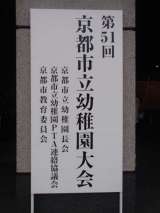 第51回
京都市立幼稚園大会
京都市立幼稚園長会
京都市立幼稚園PTA連絡協議会
京都市教育委員会